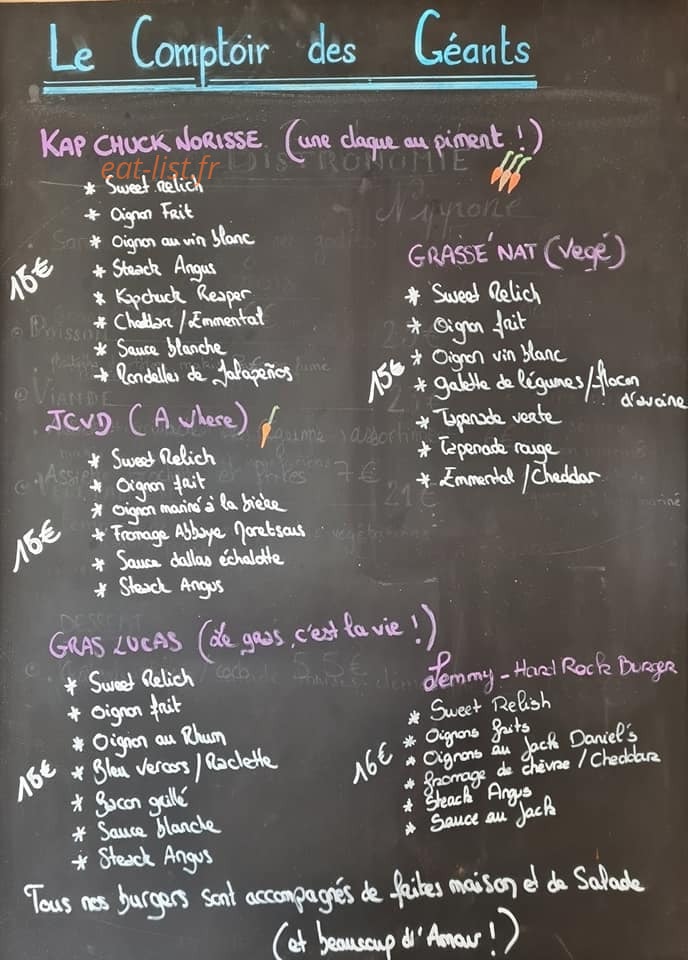 Le Comptoir des Géants
KAP CHUCK NORISSE (une claque au piment !)
eat-list.fr
* Sweet Relich
* Oignon Frit
* Oignon au vin blanc
* Steack Angus
* Kapchuck Reaper
* Cheddar / Emmental
* Sauce blanche
* Rondelles de Jalapeños
15€
GRASSE' NAT (Vegé)
* Sweet Relich
* Oignon frit
* Oignon vin blanc
* galette de légumes / flocon
d'avoine
* Tapenade verte
* Tapenade rouge
* Emmental / Cheddar
15€
JCVD (A where)
* Sweet Relich
* Oignon frit
* oignon mariné à la bière
* Fromage Abbaye
* Sauce dallas échalotte
* Steack Angus
15€
GRAS LUCAS (Le gras, c'est la vie !)
* Sweet Relich
* Oignon frit
* Oignon au Rhum
* Bleu Vercors / Raclette
* Bacon grillé
* Sauce blanche
* Steack Angus
15€
Lemmy - Hard Rock Burger
* Sweet Relish
* Oignons frits
* Oignons au Jack Daniel's
* fromage de chèvre / Cheddar
* Steack Angus
* Sauce au Jack
16€
Tous nos burgers sont accompagnés de frites maison et de Salade
(et beaucoup d'Amour !)